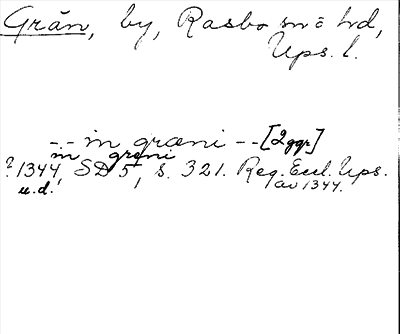 Grän, by, Rasbo sn o hd,
Ups. l.
-.- in græni - - [2 ggr]
in greni
? 1344, SD 5, s. 321. Reg. Eccl. Ups.
u.d. av 1344.